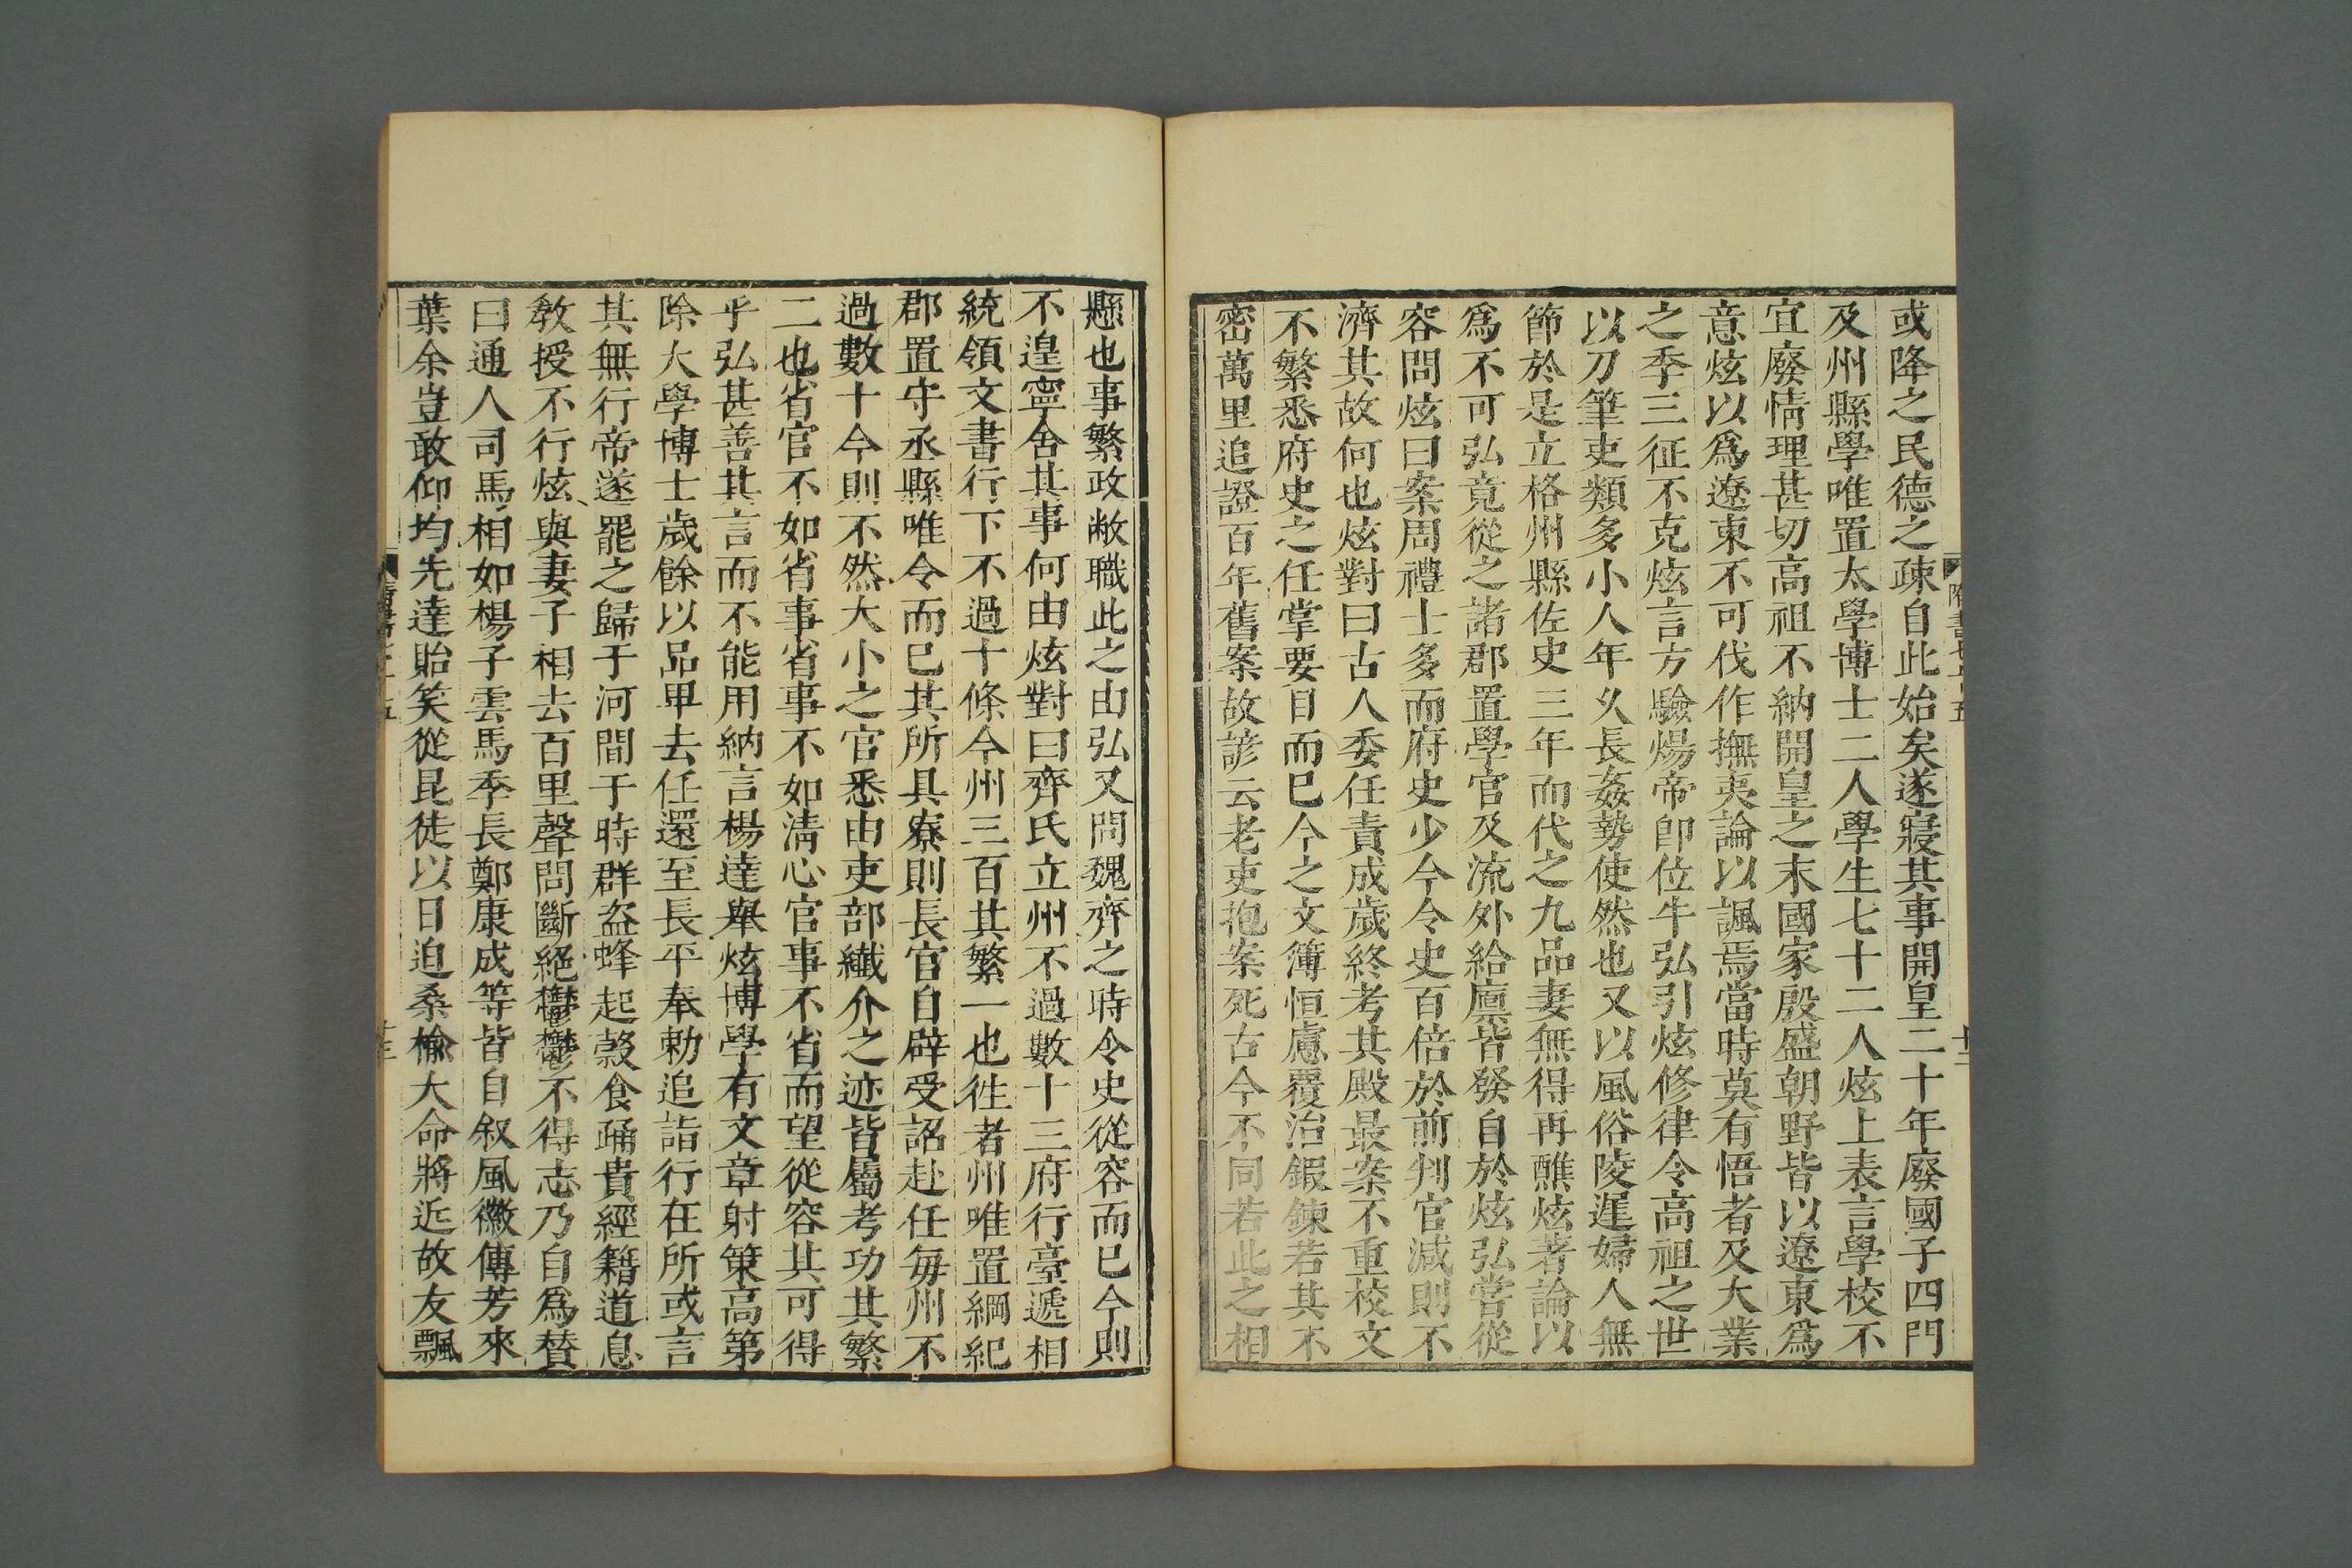 或降之民德之疎自此始矣遂寢其事開皇二十年廢國子四門
及州縣學唯置太學博士二人學生七十二人炫上表言學校不
宜廢情理甚切高祖不納開皇之末國家殷盛朝野皆以遼東爲
意炫以爲遼東不可伐作撫夷論以諷焉當時莫有悟者及大業
之季三征不克炫言方驗煬帝卽位牛弘引炫修律令高祖之世
以刀筆吏類多小人年久長姦勢使然也又以風俗陵遲婦人無
節於是立格州縣佐史三年而代之九品妻無得再醮炫著論以
爲不可弘竟從之諸郡置學官及流外給廩皆發自於炫弘嘗從
容問炫曰案周禮士多而府史少今令史百倍於前判官減則不
濟其故何也炫對曰古人委任責成歲終考其殿最案不重校文
不繁悉府史之任掌要目而已今之文簿恒慮覆治鍜鍊若其不
密萬里追證百年舊案故諺云老吏抱案死古今不同若此之相
懸也事繁政敝職此之由弘又問魏齊之時令史從容而已今則
不遑寧舍其事何由炫對曰齊氏立州不過數十三府行臺遞相
統領文書行下不過十條今州三百其繁一也徃者州唯置綱紀
郡置守丞縣唯令而已其所具寮則長官自辟受詔赴任每州不
過數十今則不然大小之官悉由吏部纎介之迹皆屬考功其繁
二也省官不如省事省事不如清心官事不省而望從容其可得
乎弘甚善其言而不能用納言楊達舉炫博學有文章射策高第
除大學博士歲餘以品卑去任還至長平奉勅追詣行在所或言
其無行帝遂罷之歸于河間于時群盜蜂起穀食踊貴經籍道息
敎授不行炫與妻子相去百里聲問斷絕鬱鬱不得志乃自爲贊
曰通人司馬相如楊子雲馬季長鄭康成等皆自叙風徽傳芳來
葉余豈敢仰均先達貽笑從昆徒以日迫桑榆大命將近故友飄